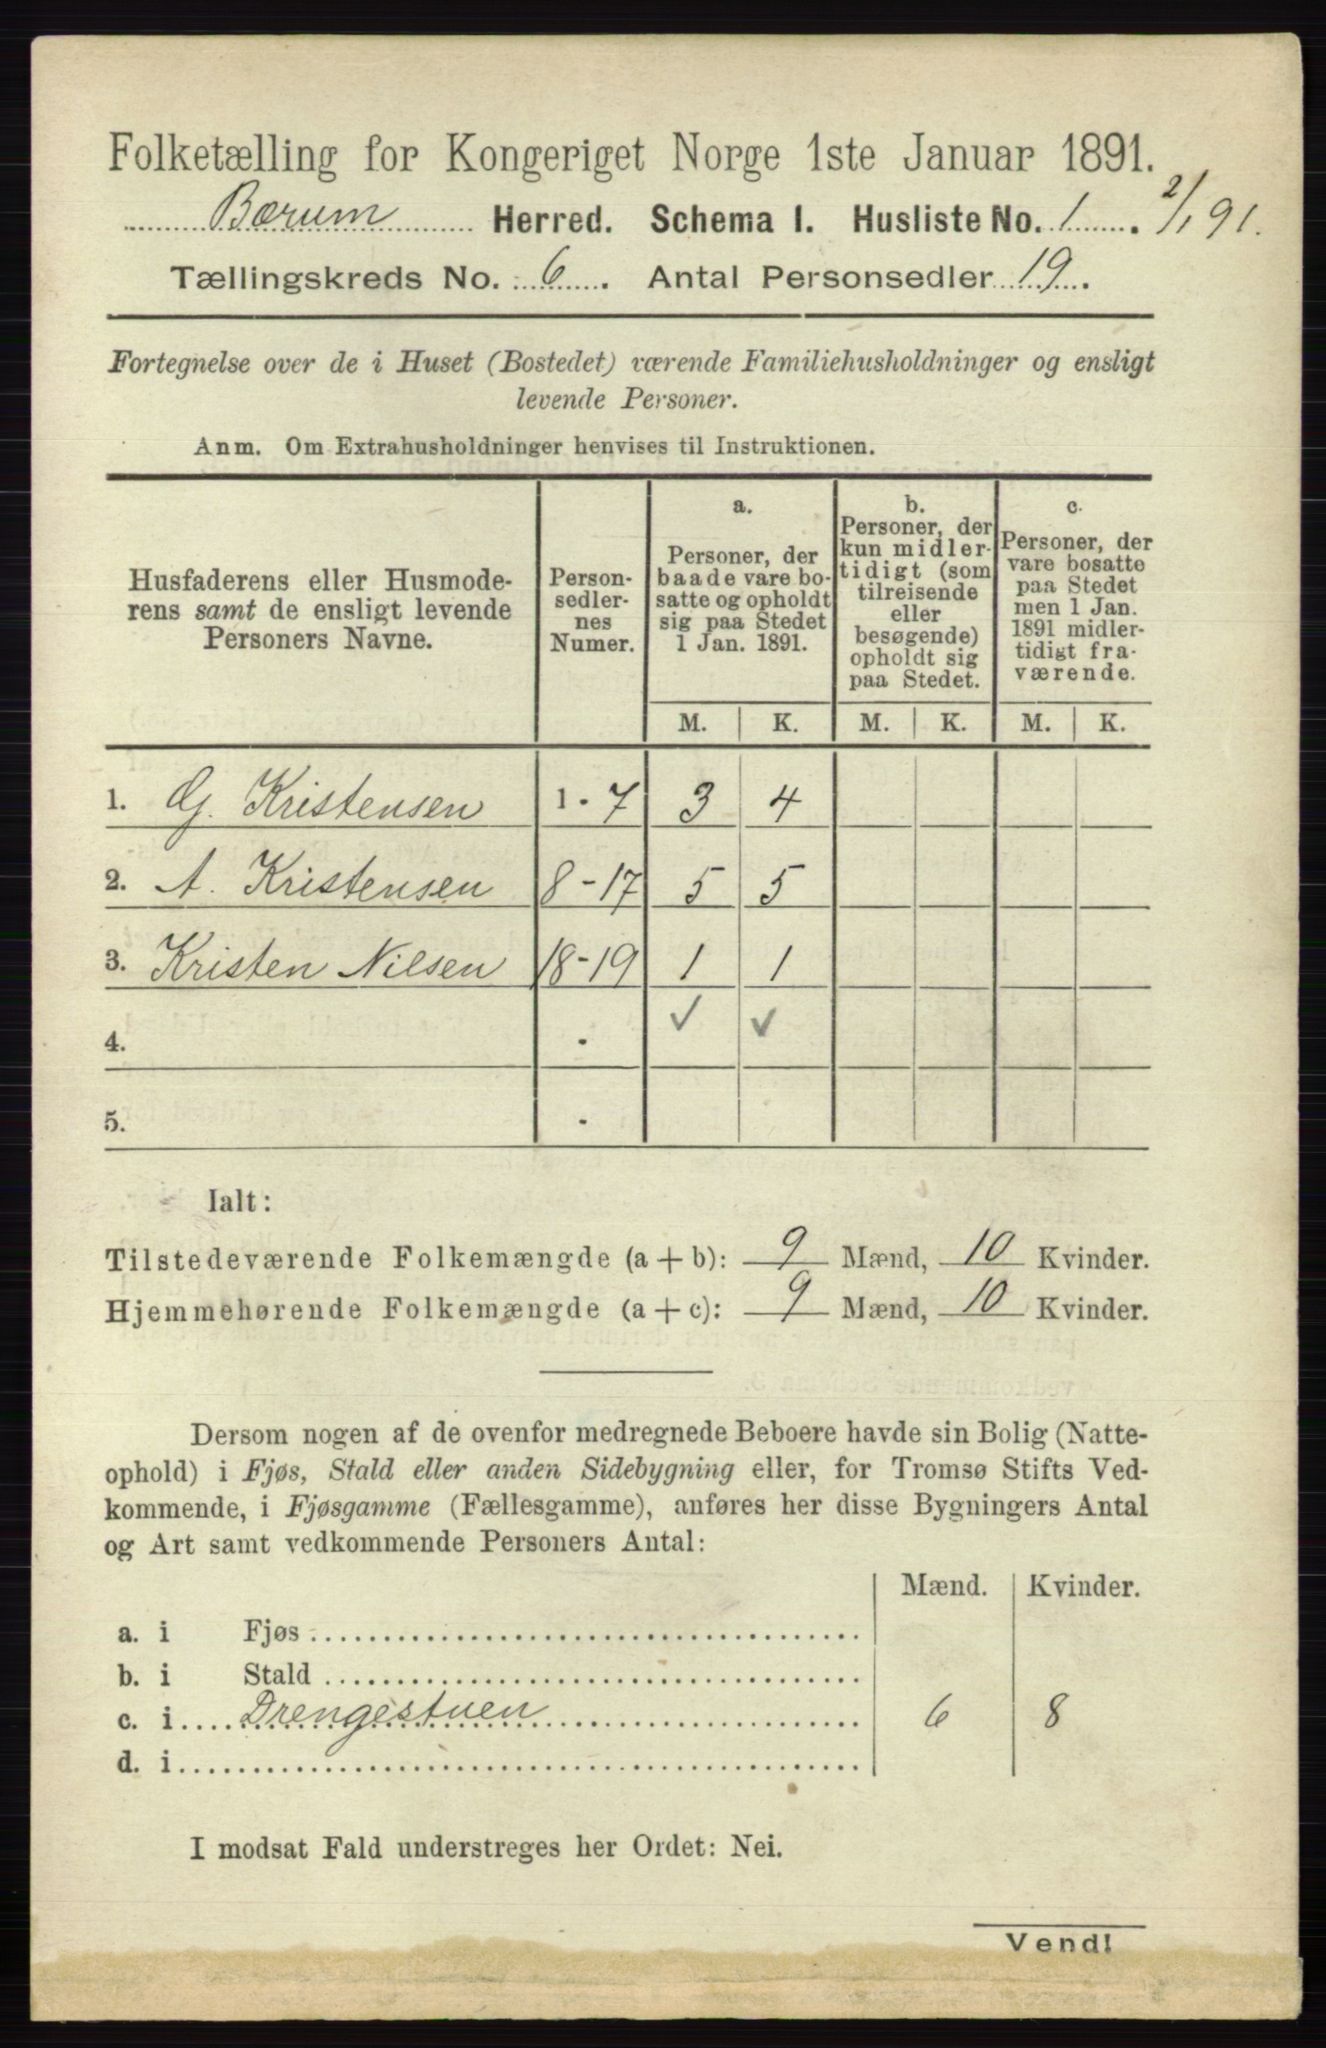 Folketælling for Kongeriget Norge 1ste Januar 1891.
Bærum Herred. Schema I. Husliste No. 1. 2/1 91.
Tællingskreds No. 6. Antal Personsedler 19.
Fortegnelse over de i Huset (Bostedet) værende Familiehusholdninger og ensligt
levende Personer.
Anm. Om Extrahusholdninger henvises til Instruktionen.
Husfaderens eller Husmode-
rens samt de ensligt levende
Personers Navne.
Person-
sedler-
nes
Numer.
a.
Personer, der
baade vare bo-
satte og opholdt
sig paa Stedet
1 Jan. 1891.
b.
Personer, der
kun midler-
tidigt (som
tilreisende
eller
besøgende)
opholdt sig
paa Stedet.
c.
Personer, der
vare bosatte
paa Stedet
men 1 Jan.
1891 midler-
tidigt fra-
værende.
M. K. M. K. M. K.
1. G. Kristensen 1 - 7 3 4
2. A. Kristensen 8-17 5 5
3. Kristen Nilsen 18-19 1 1
4. - ✓ ✓
5. -
Ialt:
Tilstedeværende Folkemængde (a + b): 9 Mænd, 10 Kvinder.
Hjemmehørende Folkemængde (a + c): 9 Mænd, 10 Kvinder.
Dersom nogen af de ovenfor medregnede Beboere havde sin Bolig (Natte-
ophold) i Fjøs, Stald eller anden Sidebygning eller, for Tromsø Stifts Ved-
kommende, i Fjøsgamme (Fællesgamme), anføres her disse Bygningers Antal
og Art samt vedkommende Personers Antal:
Mænd. Kvinder.
a. i Fjøs
b. i Stald
c. i Drengestuen 6 8
d. i
I modsat Fald understreges her Ordet: Nei.
Vend!